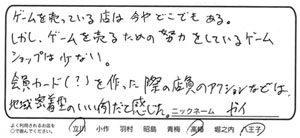 ゲームを売っている店は今やどこでもある。
しかし、ゲームを売るための努力をしているゲーム
ショップは少ない。
会員カード(?)を作った際の店員のアクションなどは、
地域密着型のいい例だと感じた。 ニックネーム ガイ
よく利用されるお店を
○で囲んでください。 立川 小作 羽村 昭島 青梅 高幡 堀之内 八王子